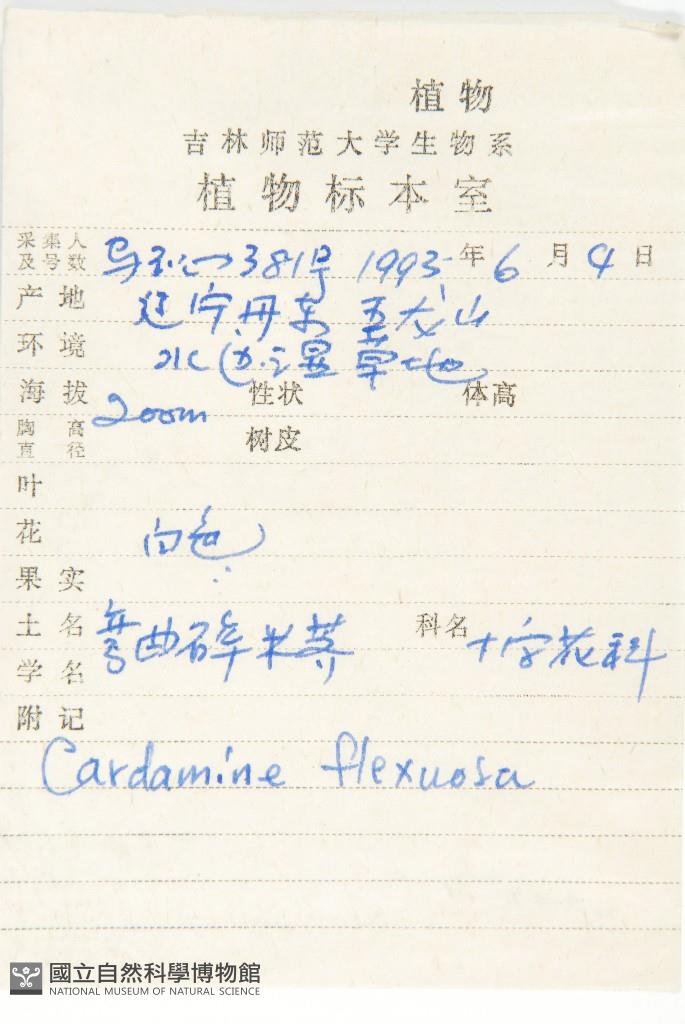 植物
吉林师范大学生物系
植物标本室
采集人及号数 381号 1993年6月4日
产地 辽宁丹东 五龙山
环境 水边湿草地
海拔 200m 性状 体高
胸高直径 树皮
叶
花 白色
果实
土名 弯曲碎米荠 科名 十字花科
学名
附记
Cardamine flexuosa
國立自然科學博物館
NATIONAL MUSEUM OF NATURAL SCIENCE